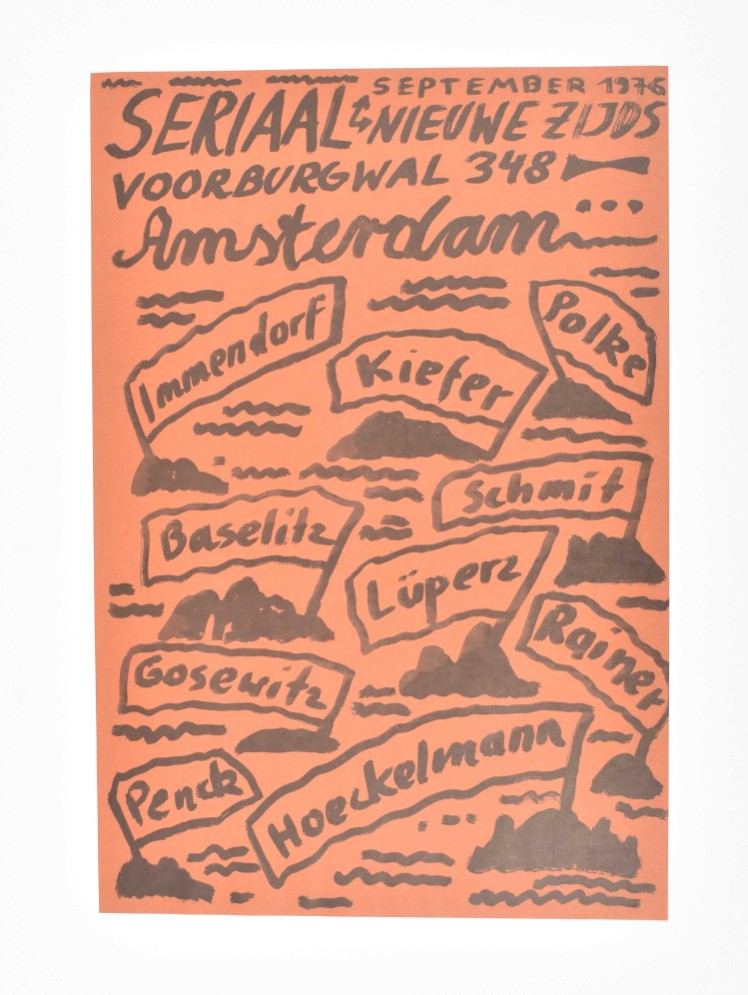 SEPTEMBER 1976
SERIAAL NIEUWE ZIJDS
VOORBURGWAL 348
Amsterdam
Immendorf
Kiefer
Polke
Baselitz
Schmit
Lüperz
Rainer
Gosewitz
Hoeckelmann
Penck